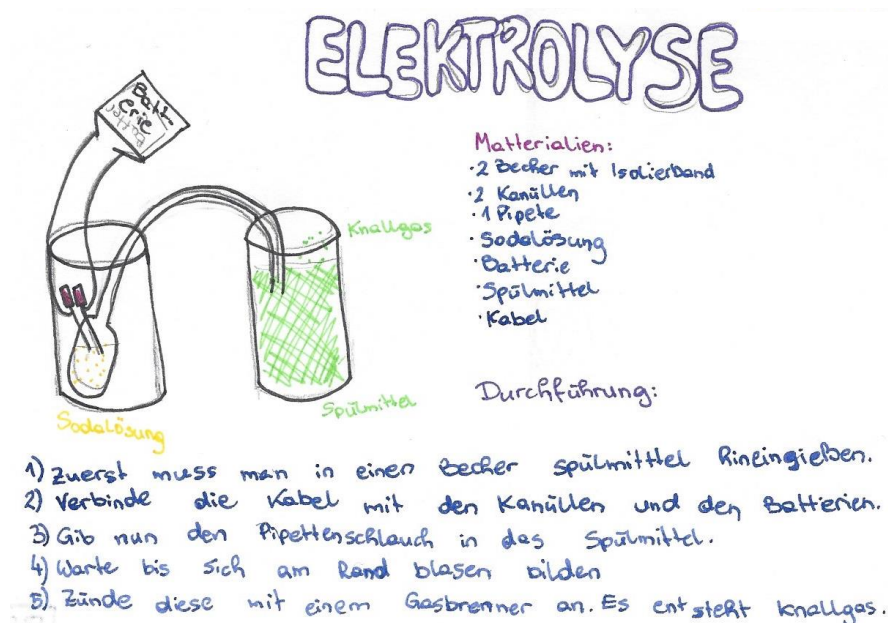 ELEKTROLYSE
Batt-
erie
Matterialien:
·2 Becher mit Isolierband
·2 Kanüllen
·1 Pipete
·Sodalösung
·Batterie
·Spülmittel
·Kabel
Knallgas
Spülmittel
Sodalösung
Durchführung:
1) Zuerst muss man in einen Becher spülmitttel Rineingießen.
2) Verbinde die Kabel mit den Kanüllen und den Battierien.
3) Gib nun den Pipettenschlauch in das Spülmittel.
4) Warte bis sich am Rand blasen bilden
5) Zünde diese mit einem Gasbrenner an. Es entsteht knallgas.